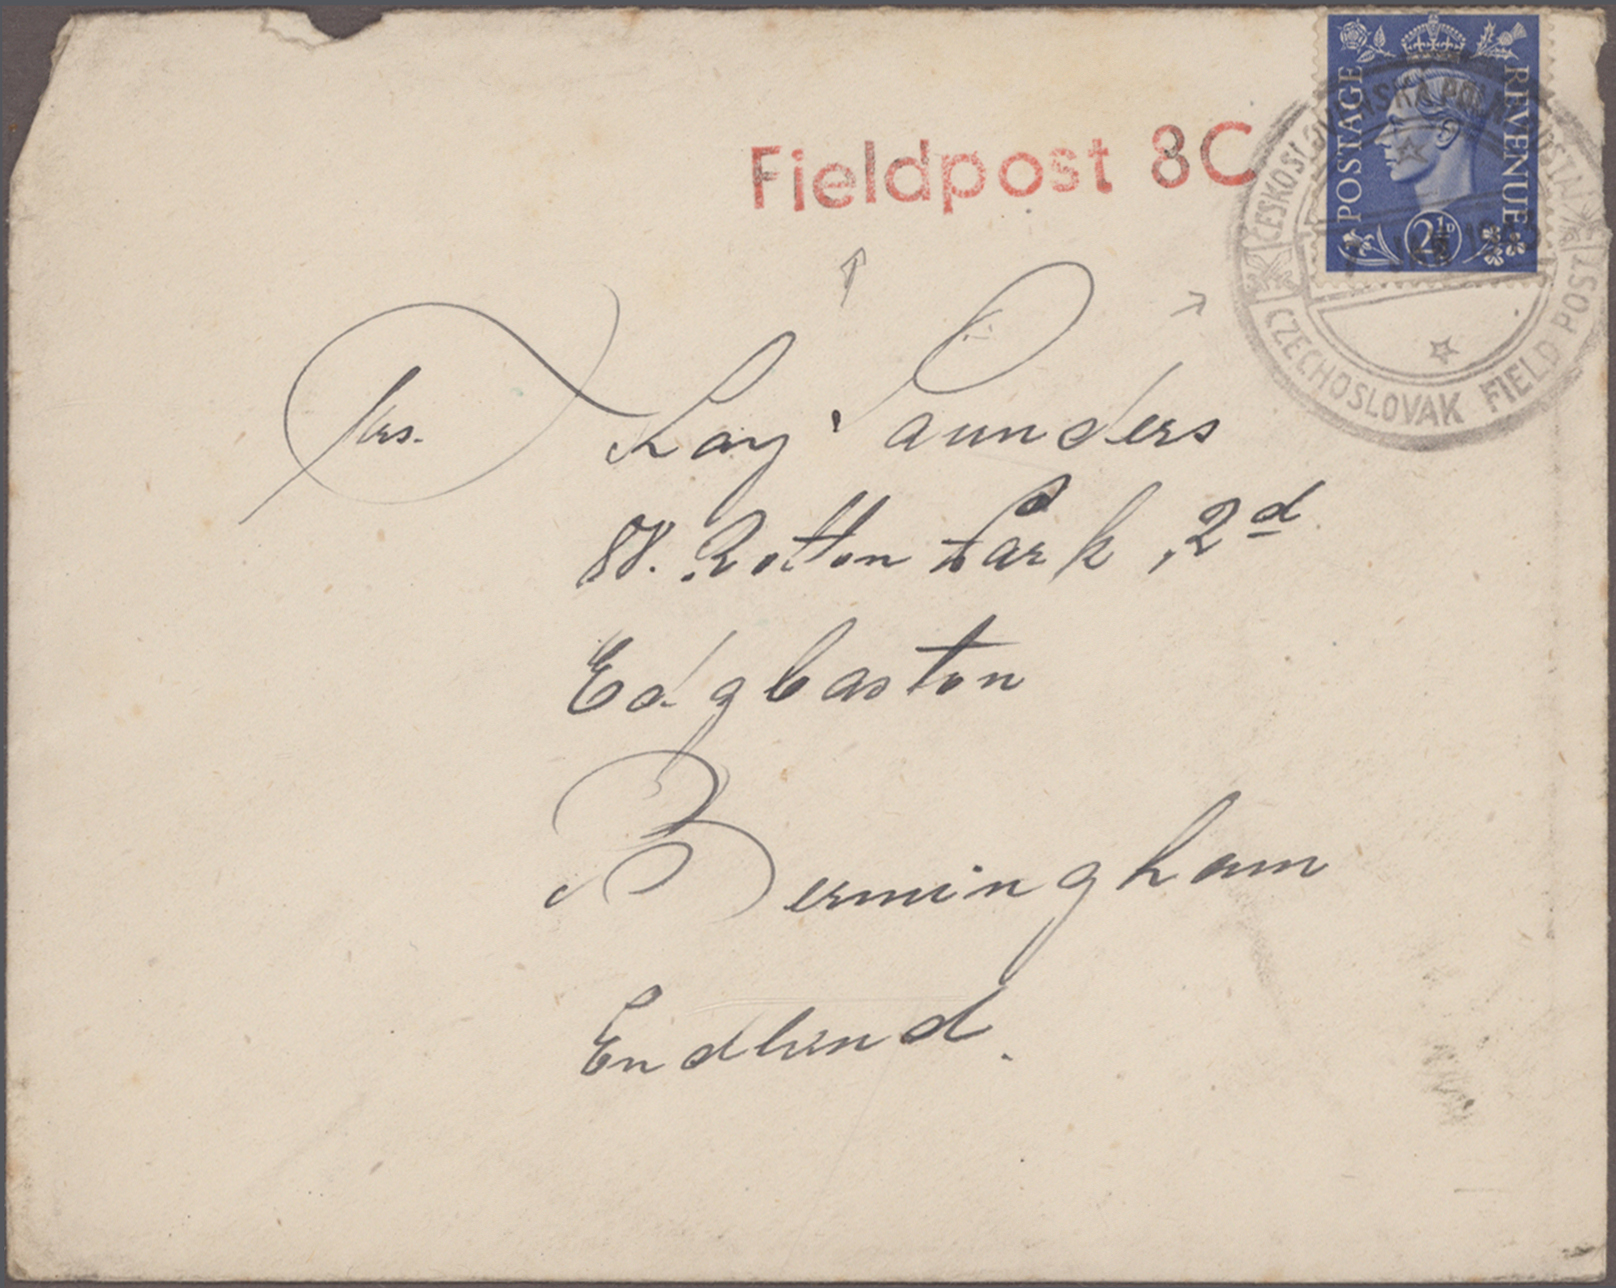 Fieldpost 8C
POSTAGE REVENUE
2½D
ČESKOSLOVENSKÁ POLNÍ POŠTA
CZECHOSLOVAK FIELD POST
Mrs. Kay Saunders
88. Rotton Park, 2d
Edgbaston
Bermingham
Endlend.